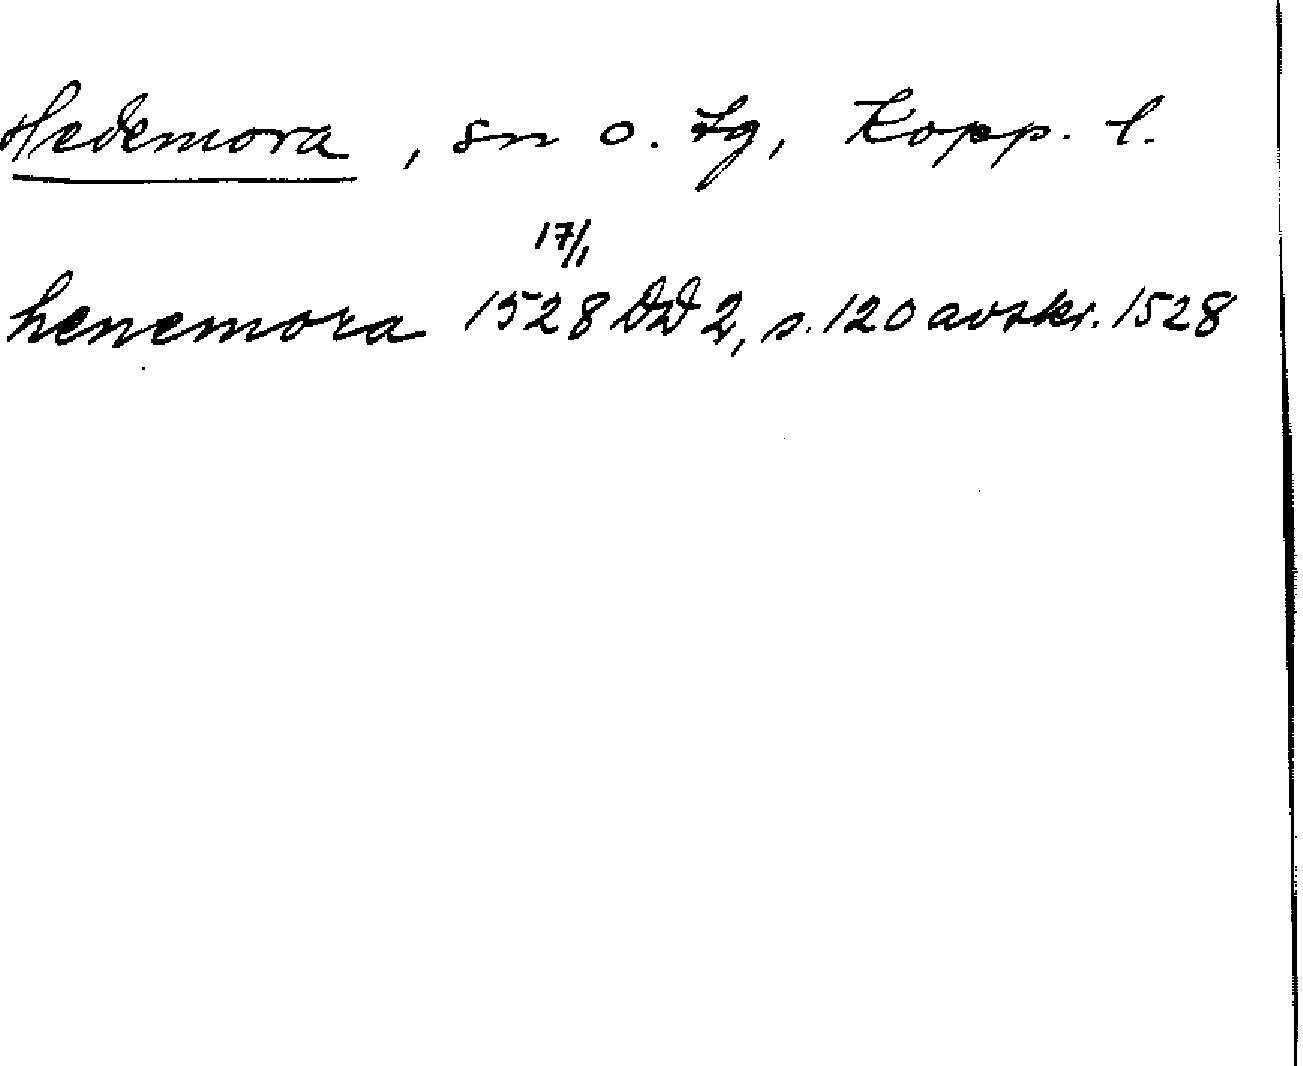 Hedemora, sn o. tg, Kopp. l.
17/1
henemora 1528 DD 2, s. 120 avskr. 1528